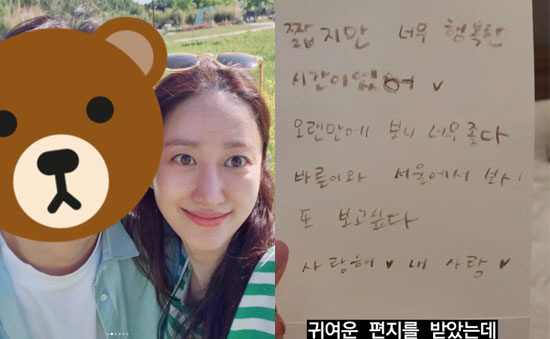 짧지만 너무 행복한
시간이였어 ♥
오랜만에 보니 너무좋다
서울에서 보자!
또 보고싶다
사랑해 ♥ 내 사랑 ♥
귀여운 편지를 받았는데